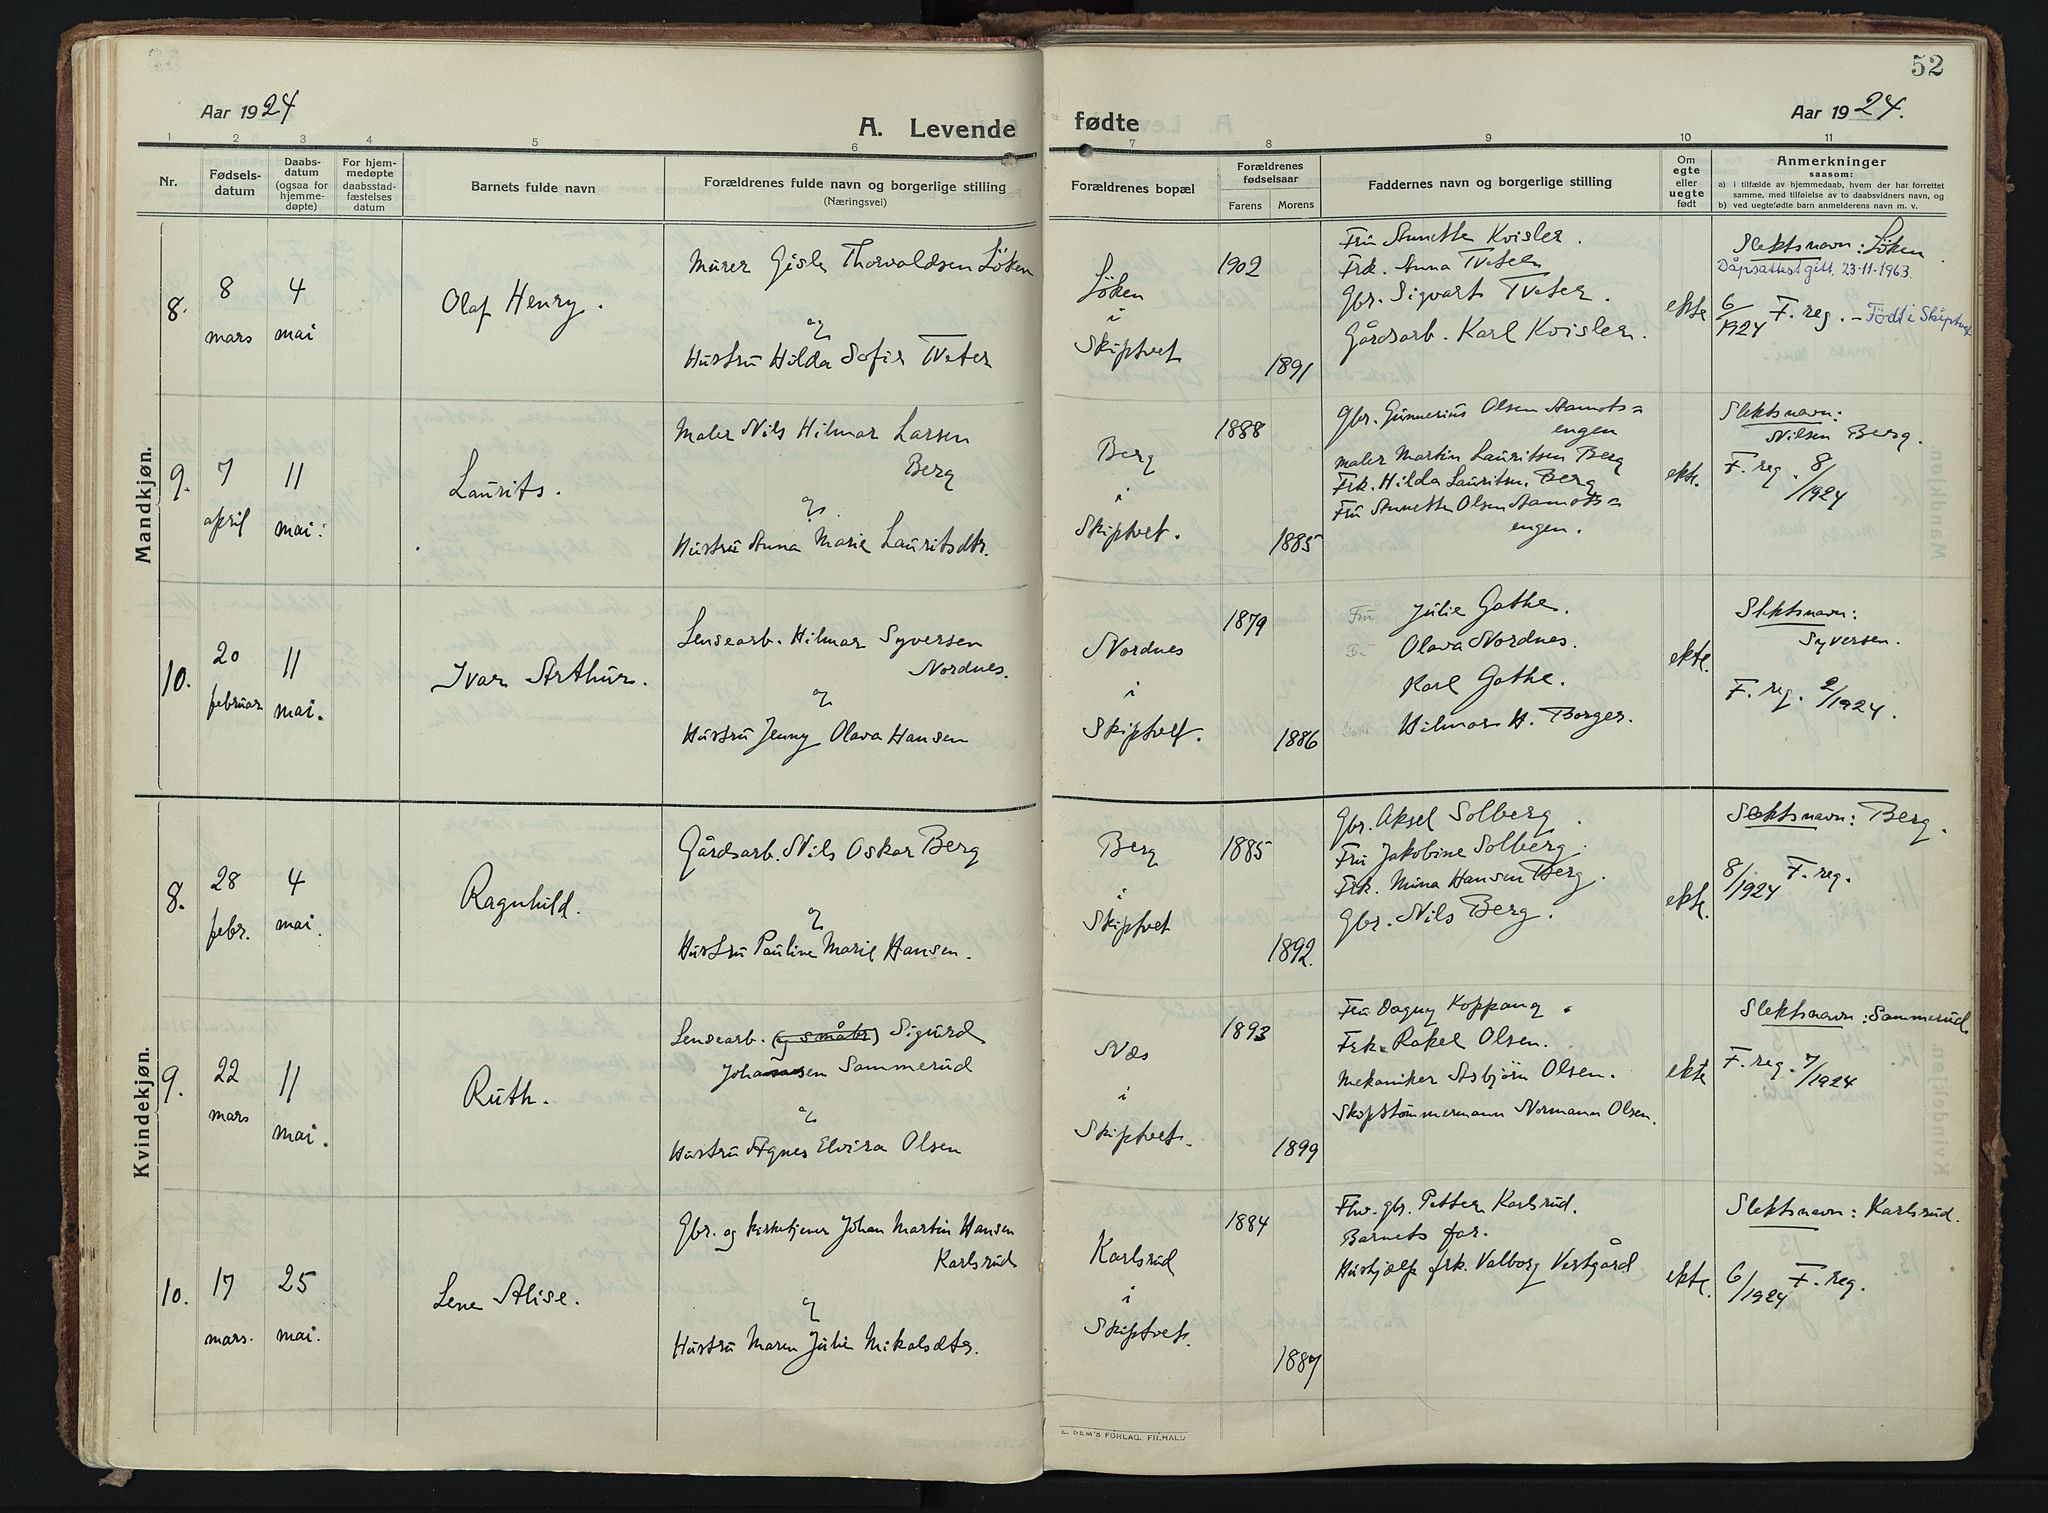 52
Aar 1924
A. Levende fødte
Aar 1924.
1 2 3 4 5 6 7 8 9 10 11
Nr.
Fødsels-
datum
Daabs-
datum
(ogsaa for
hjemme-
døpte)
For hjem-
medøpte
daabsstad-
fæstelses
datum
Barnets fulde navn
Forældrenes fulde navn og borgerlige stilling
(Næringsvei)
Forældrenes bopæl
Forældrenes
fødselsaar
Farens Morens
Faddernes navn og borgerlige stilling
Om
egte
eller
uegte
født
Anmerkninger
saasom:
a) i tilfælde av hjemmedaab, hvem der har forrettet
samme, med tilføielse av to daabsvidners navn, og
b) ved uegtefødte barn anmelderens navn m. v.
Mandkjøn.
8.
8
mars
4
mai
Olaf Henry.
Murer Gisle Thorvaldsen Löken
og
Hustru Hilda Sofie Tveter
Löken
i
Skiptvet
1902
1891
Fru Annette Kvisler.
Frk. Anna Tveter
Gbr. Sigvart Tveter.
Gårdsarb. Karl Kvisler.
ekte
Slektsnavn: Löken.
Dåpsattest gitt. 23-11-1963.
6/1924 F. reg. - Födt i Skiptvet
9.
7
april
11
mai.
Laurits.
Maler Nils Hilmar Larsen
Berg
og
Hustru Anna Marie Lauritsdtr.
Berg
i
Skiptvet.
1888
1885
Gbr. Gunnerius Olsen Aamots=
engen
Maler Martin Lauritsen Berg
Frk. Hilda Lauritsen Berg
Fru Annette Olsen Aamots=
engen.
ekte.
Slektsnavn:
Nilsen Berg.
F. reg. 8/1924
10.
20
februar
11
mai.
Ivar Arthur.
Lensearb. Hilmar Syversen
Nordnes.
og
Hustru Jenny Olava Hansen
Nordnes
i
Skiptvet.
1879
1886
Fru Julie Gathe.
Fru Olava Nordnes.
Karl Gathe.
Hilmar H. Borger.
ekte.
Slektsnavn:
Syversen.
F. reg. 2/1924.
Kvindekjøn.
8.
28
febr.
4
mai.
Ragnhild.
Gårdsarb. Nils Oskar Berg
og
Hustru Pauline Marie Hansen.
Berg
i
Skiptvet
1885
1892.
Gbr. Aksel Solberg.
Fru Jakobine Solberg.
Frk. Mina Hansen Berg.
Gbr. Nils Berg.
ekte.
Slektsnavn: Berg.
8/1924 F. reg.
9.
22
mars
11
mai.
Ruth.
Lensearb. (og småbr) Sigurd
Johansen Sammerud
og
Hustru Agnes Elvira Olsen
Næs
i
Skiptvet.
1893
1899
Fru Dagny Koppang.
Frk. Rakel Olsen.
Mekaniker Asbjörn Olsen.
Skipstømmermann Normann Olsen.
ekte
Slektsnavn: Sammerud.
F. reg. 7/1924
10.
17
mars.
25
mai.
Lene Alise.
Gbr. og kirketjener Johan Martin Hansen
Karlsrud
og
Hustru Maren Julie Mikalsdtr.
Karlsrud
i
Skiptvet.
1884
1887
Fhv. gbr. Petter Karlsrud.
Barnets far.
Hushjælp frk. Valborg Vestgård
ekte.
Slektsnavn: Karlsrud.
6/1924 F. reg.
E. SEM'S FORLAG. FR.HALD